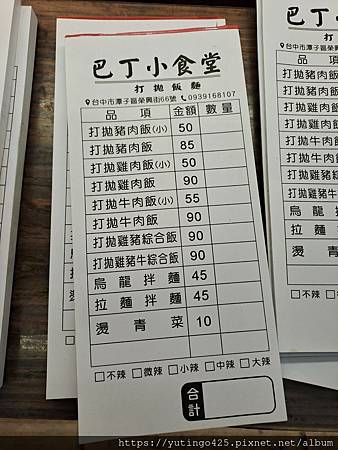 巴丁小食堂
打拋飯麵
台中市潭子區榮興街66號 0939168107
品項 金額 數量
打拋豬肉飯(小) 50
打拋豬肉飯 85
打拋雞肉飯(小) 50
打拋雞肉飯 90
打拋牛肉飯(小) 55
打拋牛肉飯 90
打拋雞豬綜合飯 90
打拋雞豬牛綜合飯 90
烏龍拌麵 45
拉麵拌麵 45
燙青菜 10
不辣 微辣 小辣 中辣 大辣
合計
巴丁小
打拋
台中市潭子區榮興
品項
打拋豬肉飯
打拋豬肉飯
打拋雞肉飯
打拋雞肉飯
打拋牛肉飯
打拋牛肉飯
打拋雞豬綜
打拋雞豬牛
烏龍拌
拉麵拌
燙青
不辣
https://yutingo425.pixnet.net/album